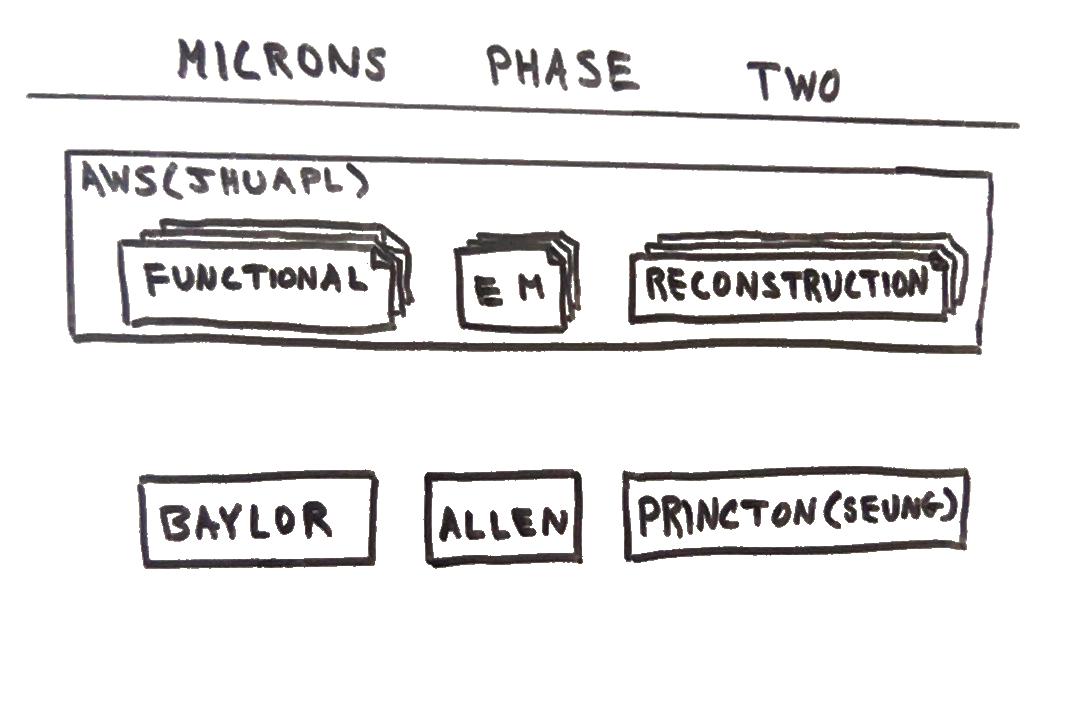 MICRONS PHASE TWO
AWS(JHUAPL)
FUNCTIONAL EM RECONSTRUCTION
BAYLOR ALLEN PRINCTON(SEUNG)